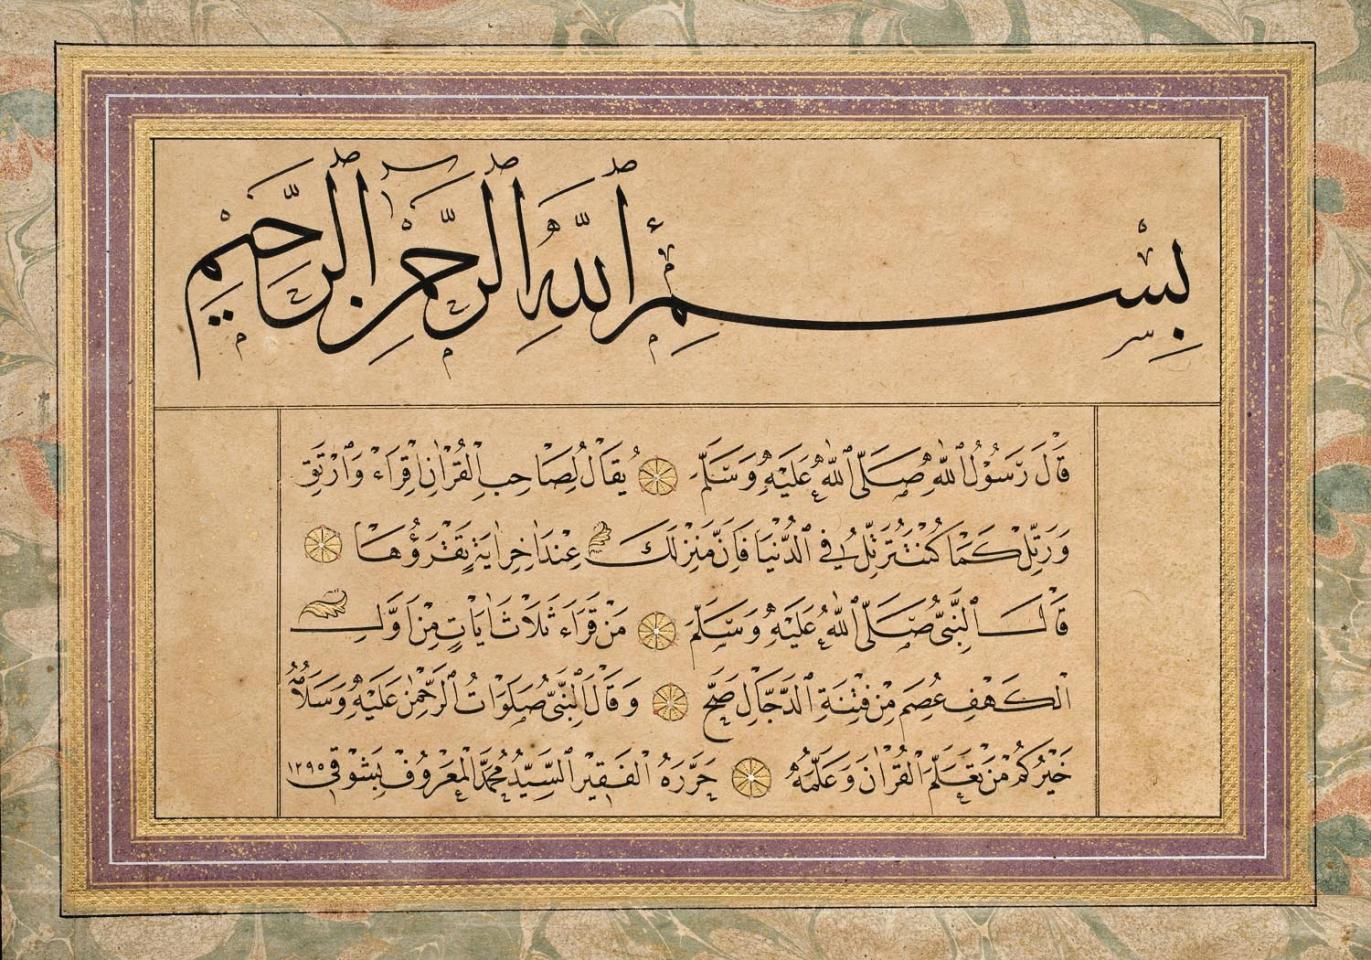 بِسْمِ ٱللَّهِ ٱلرَّحْمٰنِ ٱلرَّحِيمِ
قَالَ رَسُولُ اللّٰهِ صَلَّى اللّٰهُ عَلَيْهِ وَسَلَّمَ يُقَالُ لِصَاحِبِ الْقُرْاٰنِ اِقْرَاءْ وَارْتَقِ
وَرَتِّلْ كَمَا كُنْتَ تُرَتِّلُ فِي الدُّنْيَا فَاِنَّ مَنْزِلَكَ عِنْدَ اٰخِرِ اٰيَةٍ تَقْرَؤُهَا
قَالَ النَّبِيُّ صَلَّى اللّٰهُ عَلَيْهِ وَسَلَّمَ مَنْ قَرَاَءَ ثَلَاثَ اٰيَاتٍ مِنْ اَوَّلِ
الْكَهْفِ عُصِمَ مِنْ فِتْنَةِ الدَّجَّالِ صَحَّ وَقَالَ النَّبِيُّ صَلَوَاتُ الرَّحْمٰنِ عَلَيْهِ وَسَلَامُهُ
خَيْرُكُمْ مَنْ تَعَلَّمَ الْقُرْاٰنَ وَعَلَّمَهُ حَرَّرَهُ الْفَقِيرُ السَّيِّدُ مُحَمَّدُ الْمَعْرُوفُ بِشَوْقِي ١٢٩٥